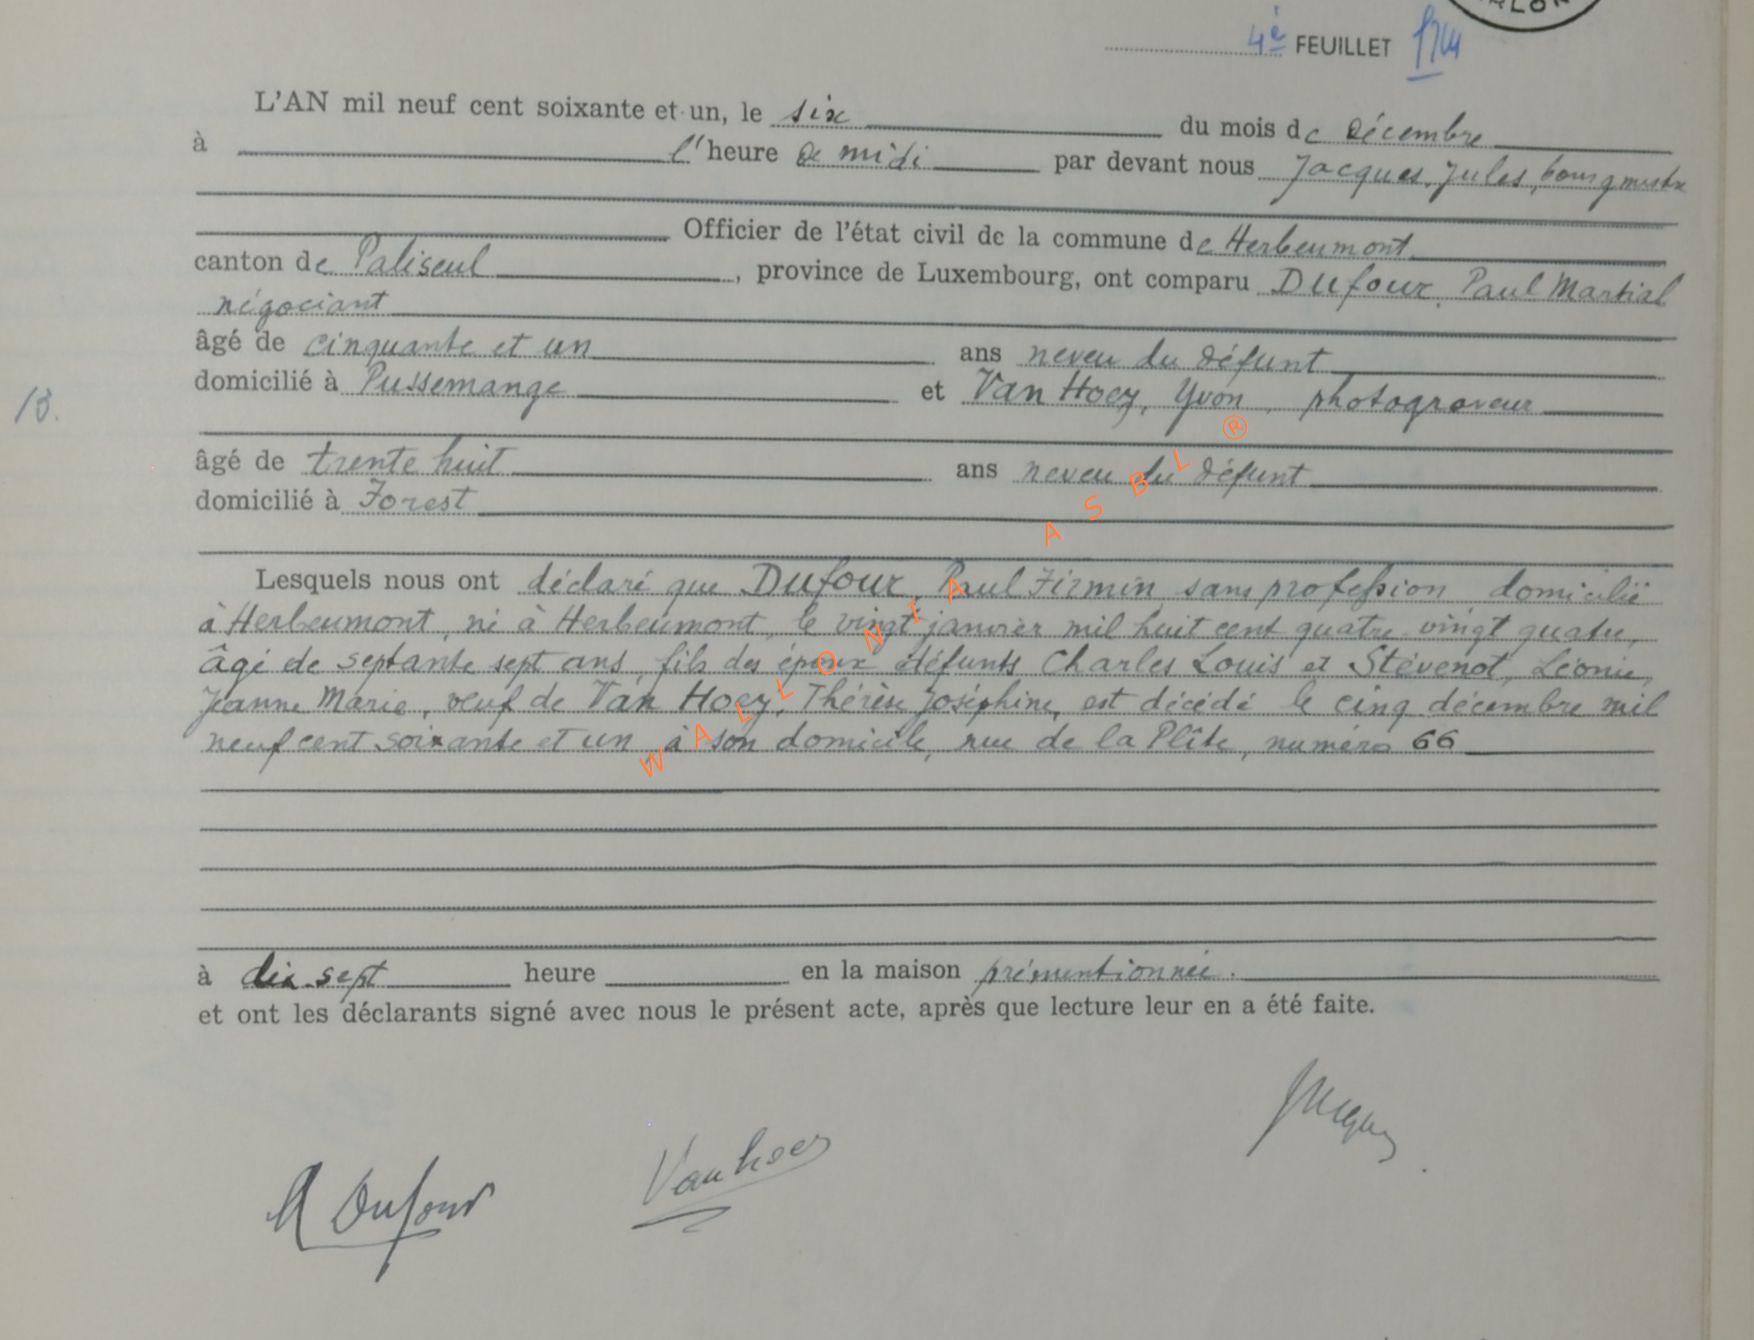 4è FEUILLET
L'AN mil neuf cent soixante et un, le six du mois de décembre
à l'heure de midi par devant nous Jacques, Jules, bourgmestre
Officier de l'état civil de la commune de Herbeumont
canton de Paliseul, province de Luxembourg, ont comparu Dufour, Paul Martial
négociant
âgé de cinquante et un ans neveu du défunt
domicilié à Pussemange et Van Hoey, Yvon, photograveur
13.
âgé de trente huit ans neveu du défunt
domicilié à Forest
Lesquels nous ont déclaré que Dufour, Paul Firmin, sans profession, domicilié
à Herbeumont, né à Herbeumont, le vingt janvier mil huit cent quatre-vingt quatre,
âgé de septante sept ans, fils des époux défunts Charles Louis et Stévenot, Léonie,
Jeanne Marie, veuf de Van Hoey, Thérèse Joséphine, est décédé le cinq décembre mil
neuf cent soixante et un à son domicile, rue de la Plîte, numéro 66
WALLONIA ASBL ®
à dix-sept heure en la maison prémentionnée.
et ont les déclarants signé avec nous le présent acte, après que lecture leur en a été faite.
Jacques
Dufour
Vanhoey